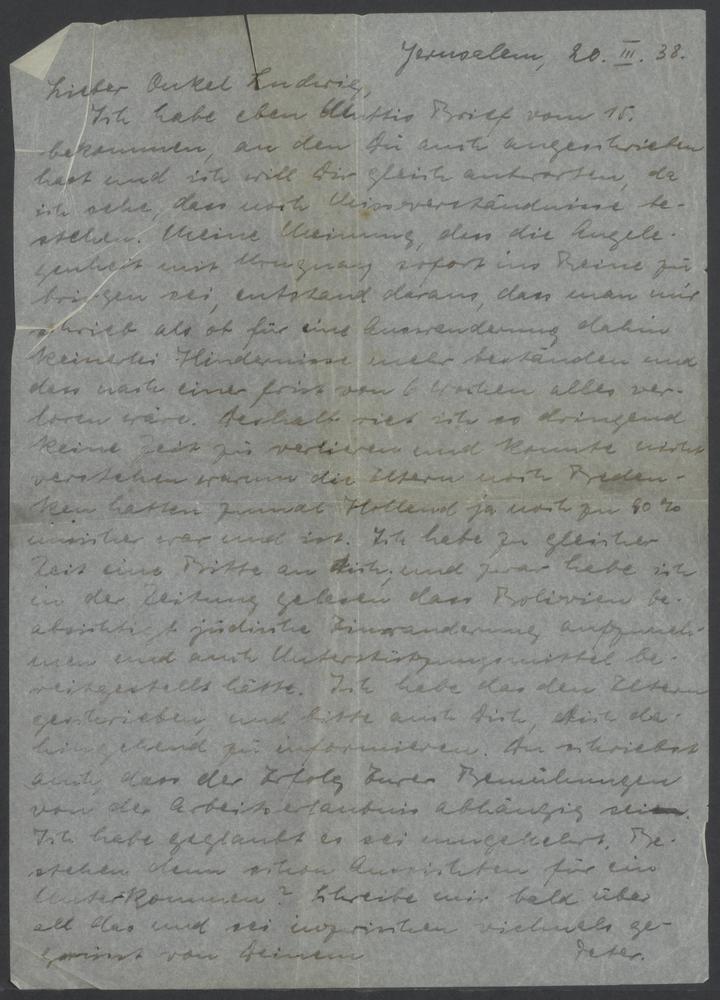 Jerusalem, 20. III. 38.
Lieber Onkel Ludwig,
Ich habe eben Muttis Brief vom 15.
bekommen, an den Du auch angeschrieben
hast und ich will Dir gleich antworten, da
ich sehe, dass noch Missverständnisse be-
stehen. Meine Meinung, dass die Angele-
genheit mit Uruguay sofort ins Reine zu
bringen sei, entstand daraus, dass man mir
schrieb als ob für eine Auswanderung dahin
keinerlei Hindernisse mehr beständen und
dass nach einer Frist von 6 Wochen alles ver-
loren wäre. Deshalb riet ich so dringend
keine Zeit zu verlieren und konnte nicht
verstehen warum die Eltern noch Beden-
ken hatten zumal Holland ja noch zu 90%
unsicher war und ist. Ich habe zu gleicher
Zeit eine Bitte an Dich, und zwar habe ich
in der Zeitung gelesen dass Bolivien be-
absichtigt jüdische Einwanderung aufzuneh-
men und auch Unterstützungsmittel be-
reitgestellt hätte. Ich habe das den Eltern
geschrieben, und bitte auch Dich, Dich da-
hingehend zu informieren. Du schriebst
auch, dass der Erfolg Eurer Bemühungen
von der Arbeitserlaubnis abhängig sei.
Ich habe geglaubt es sei umgekehrt. Be-
stehen denn schon Aussichten für ein
Unterkommen? Schreibe mir bald über
all das und sei inzwischen vielmals ge-
grüsst von Deinem
Peter.